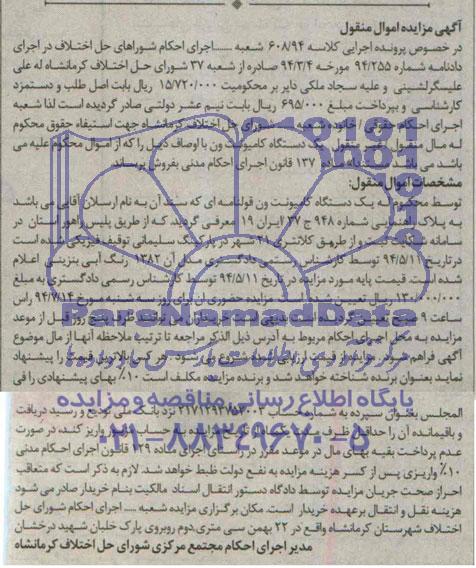 آگهی مزایده اموال منقول
در خصوص پرونده اجرایی کلاسه ۶۰۸/۹۴ شعبه ......اجرای احکام شوراهای حل اختلاف در اجرای
دادنامه شماره ۹۴/۲۵۵ مورخه ۹۴/۳/۴ صادره از شعبه ۳۷ شورای حل اختلاف کرمانشاه له علی
علیه سجاد ملکی دایر بر محکومیت ۱۵/۷۲۰/۰۰۰ ریال بابت اصل طلب و دستمزد
کارشناسی و بپرداخت مبلغ ۶۹۵/۰۰۰ ریال بابت نیم عشر دولتی صادر گردیده است لذا شعبه
اجرای احکام حقوقی / خانوده شعبه شورای حل اختلاف کرمانشاه جهت استیفاء حقوق محکوم
له مال منقول / غیر منقول یک دستگاه کامیونت ون با اوصاف ذیل را که از اموال محکوم علیه می
باشد می ماده ۱۳۷ قانون اجرای احکام مدنی بفروش برساند
مشخصات اموال منقول:
توسط محکوم له یک دستگاه کامیونت ون قولنامه ای که سند آن به نام ارسلان آقایی می باشد
به پلاک انتظامی شماره ۹۴۸ ج ۳۷ ایران ۱۹ معرفی گردید که از طریق پلیس راهور استان در
سامانه ثبت و از طریق کلانتری ۲۱ شهر در پارکینگ سلیمانی توقیف فیزیکی شده است
در تاریخ ۹۴/۵/۱۱ توسط کارشناس رسمی دادگستری مدل آن ۱۳۸۲ رنگ آبی بنزینی اعلام
شده است. قیمت پایه مورد مزایده در تاریخ ۹۴/۵/۱۱ توسط کارشناس رسمی دادگستری به مبلغ
۱۳۰/۰۰۰/۰۰۰ ریال تعیین شده است مزایده حضوری آن برای روز سه شنبه مورخ ۹۴/۷/۱۴ راس
ساعت ۹ صبح تعیین گردیده است بدیهی است خریداران می توانند ظرف پنج روز قبل از موعد
مزایده به محل اجرای احکام مربوط به آدرس ذیل الذکر مراجعه تا ترتیب ملاحظه آنها از مال موضوع
آگهی فراهم شود. مزایده از قیمت ارزیابی شده شروع می شود. هر کس بالاترین قیمت را پیشنهاد
نماید بعنوان برنده شناخته خواهد شد و برنده مزایده مکلف است ۱۰٪ بهای پیشنهادی را فی
المجلس بعنوان سپرده به شماره حساب نزد بانک ملی تودیع و رسید دریافت
و باقیمانده آن را حداکثر ظرف از تاریخ مزایده به حساب مذکور واریز کند، در صورت
عدم پرداخت بقیه بهای مال در موعد مقرر در راستای اجرای ماده ۱۲۹ قانون اجرای احکام مدنی
۱۰٪ واریزی پس از کسر هزینه مزایده به نفع دولت ظبط خواهد شد. لازم به ذکر است که متعاقب
احراز صحت جریان مزایده توسط دادگاه دستور انتقال اسناد مالکیت بنام خریدار صادر می شود
هزینه نقل و انتقال برعهده خریدار است. مکان برگزاری مزایده شعبه ..... اجرای احکام شورای حل
اختلاف شهرستان کرمانشاه واقع در ۲۲ بهمن سی متری دوم روبروی پارک خلبان شهید درخشان
مدیر اجرای احکام مجتمع مرکزی شورای حل اختلاف کرمانشاه
ParsNamadData
پایگاه اطلاع رسانی مناقصه و مزایده
۰۲۱-۸۸۳۴۹۶۷۰-۵